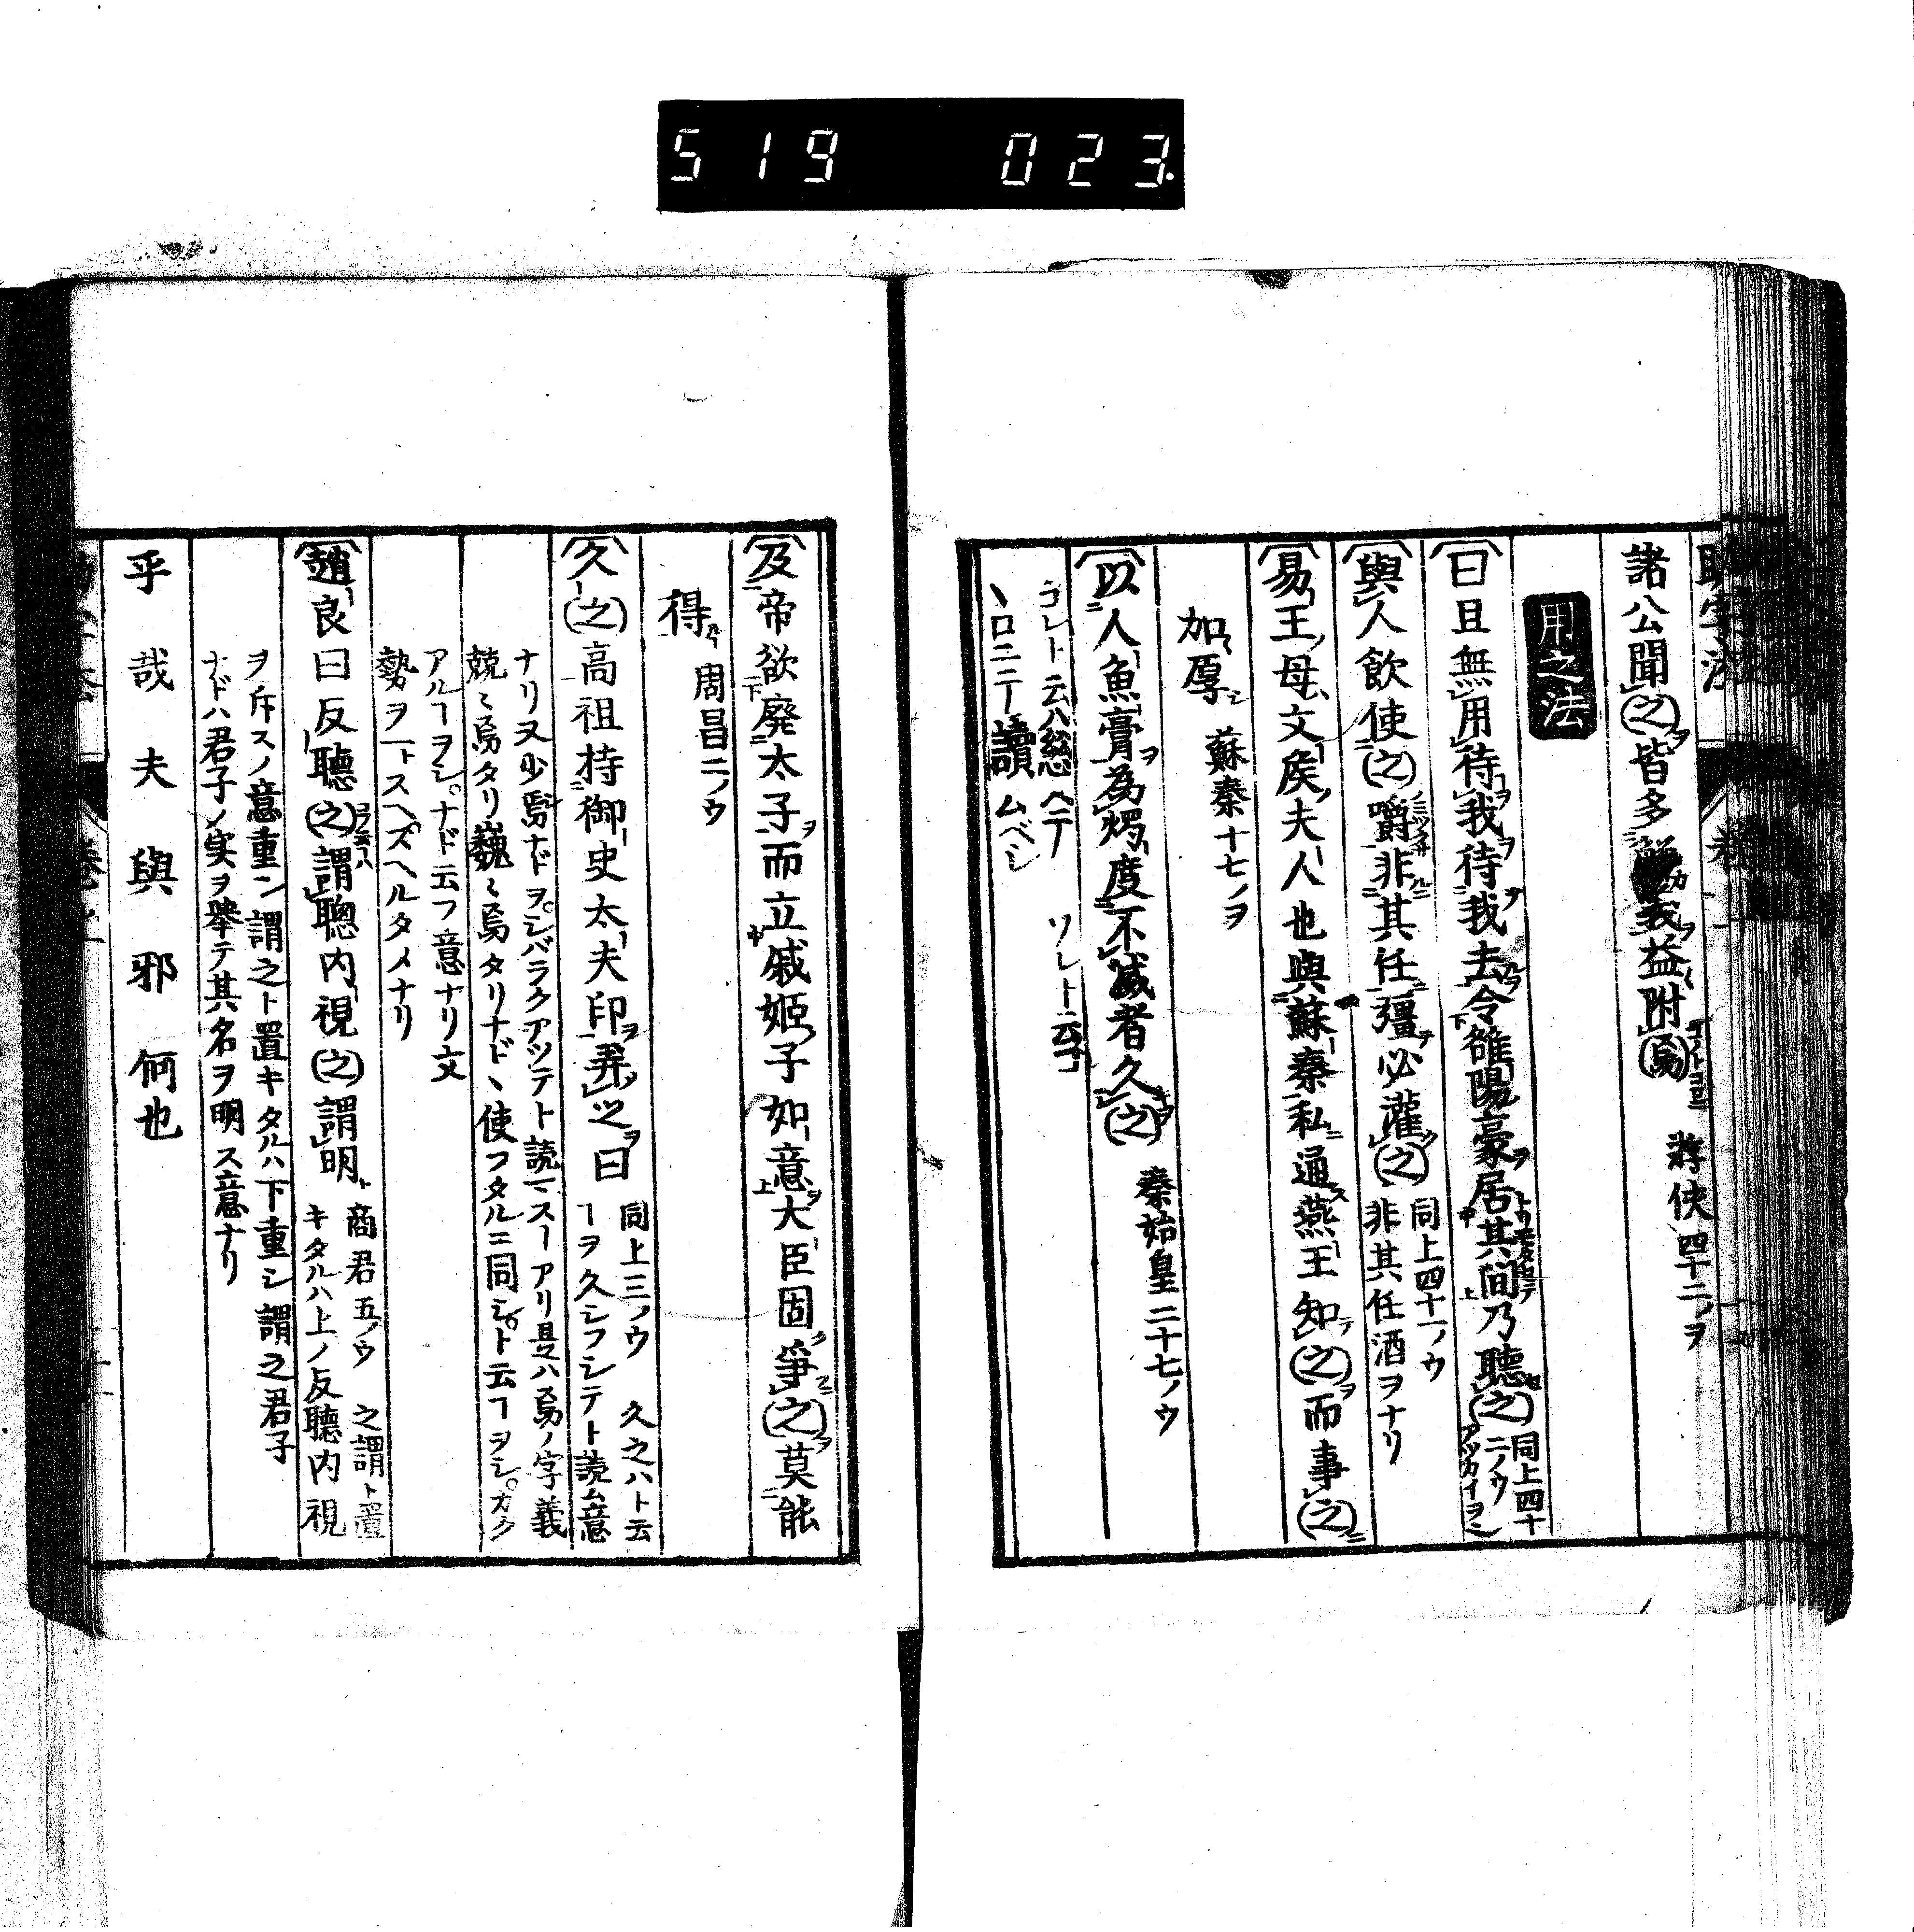 519 023
諸公聞之皆多觧義益附焉 游俠四十二ノヲ
用之法
曰且無用待我待我去令雒陽豪居其間乃聽之 同上四十二ノウ アツカイヲシ
與人飲使之嚼非其任彊必灌之 同上四十一ノウ 非其任酒ヲナリ
易王母文矦夫人也與蘇秦私通燕王知之而事之
加厚 蘇秦十七ノヲ
以人魚膏為燭度不滅者久之 秦始皇二十七ノウ
コレト云ハ総ヘテ ソレト云
讀ムベシ
及帝欲廢太子而立戚姫子如意大臣固爭之莫能
得 周昌二ノウ
久之高祖持御史大夫印弄之曰 同上三ノウ 久之ハト云
ヿヲ久シフシテト読ム意
ナリ又少焉ナドヲシバラクアツテト読マスヿアリ是ハ焉ノ字義
兢〻焉タリ巍〻焉タリナド、使フタルニ同シ。ト云ヿヲシ。カク
アルヿヲシ。ナド云フ意ナリ文
勢ヲ一トスヘズヘルタメナリ
趙良曰反聽之謂聰内視之謂明 商君五ノウ 之謂ト置
キタルハ上ノ反聽内視
ヲ斥スノ意重ン謂之ト置キタルハ下重シ謂之君子
ナドハ君子ノ実ヲ舉テ其名ヲ明ス意ナリ
乎哉夫與邪何也